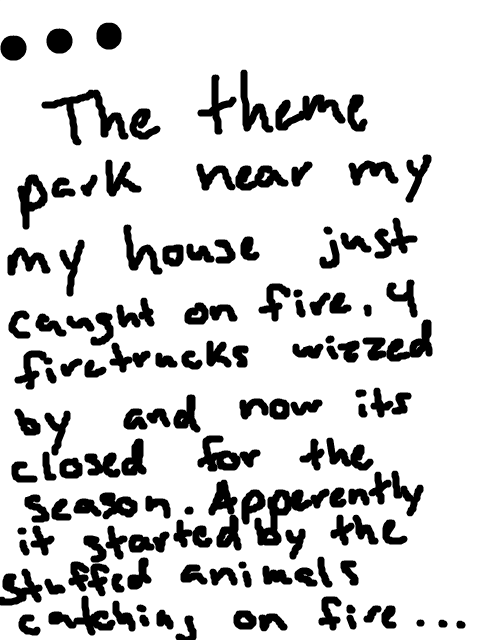 ...
The theme
park near my
my house just
caught on fire. 4
firetrucks wizzed
by and now its
closed for the
season. Apparently
it started by the
stuffed animals
catching on fire...